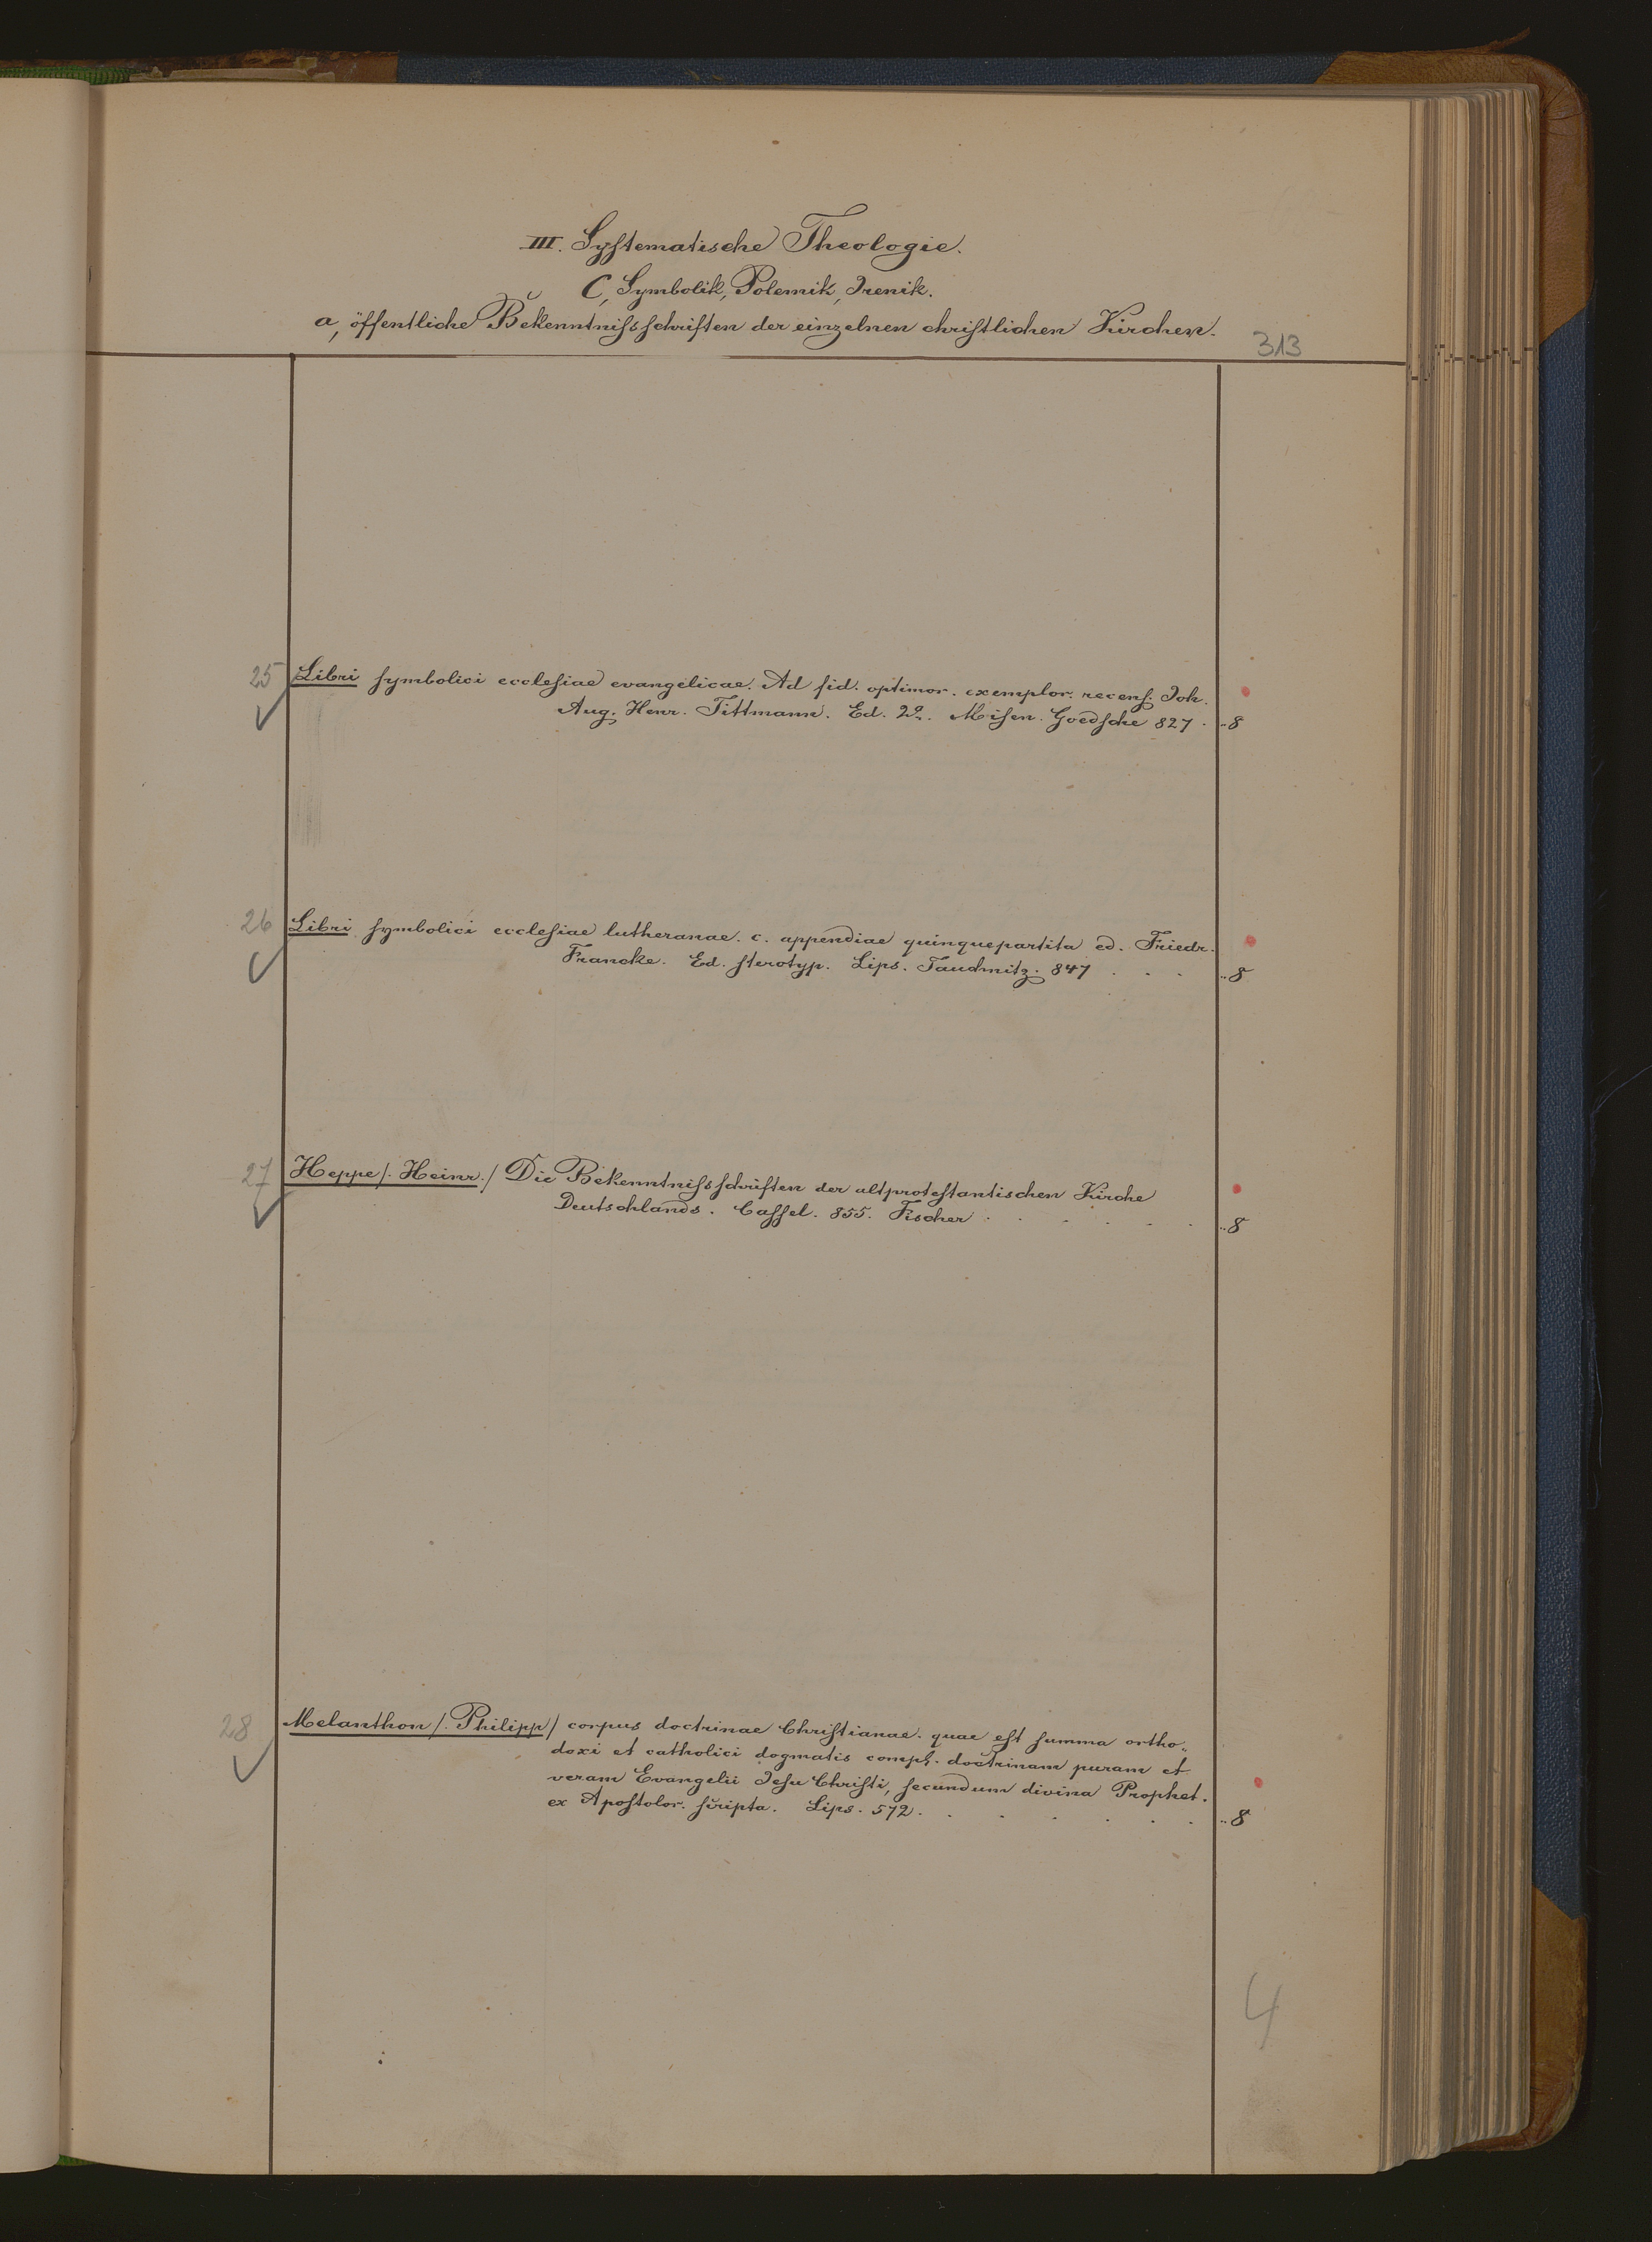 III. Systematische Theologie.
C, Symbolik, Polemik, Irenik.
a, öffentliche Bekenntnissschriften der einzelnen christlichen Kirchen.
313
25 Libri symbolici ecclesiae evangelicae. Ad fid. optimor. exemplor. recens. Joh.
Aug. Henr. Tittmann. Ed. 2a. Misen. Goedsche 827 . „8
26 Libri symbolici ecclesiae lutheranae. c. appendiae quinquepartita ed. Friedr.
Francke. Ed. sterotyp. Lips. Tauchnitz. 847 . . . „8
27 Heppe /. Heinr./ Die Bekenntnissschriften der altprotestantischen Kirche
Deutschlands. Cassel. 855. Fischer . . . . . „8
28 Melanthon /. Philipp / corpus doctrinae Christianae. quae est summa ortho„
doxi et catholici dogmatis compl. doctrinam puram et
veram Evangelii Jesu Christi, secundum divina Prophet.
ex Apostolor. scripta. Lips. 572 . . . . . . „8
4